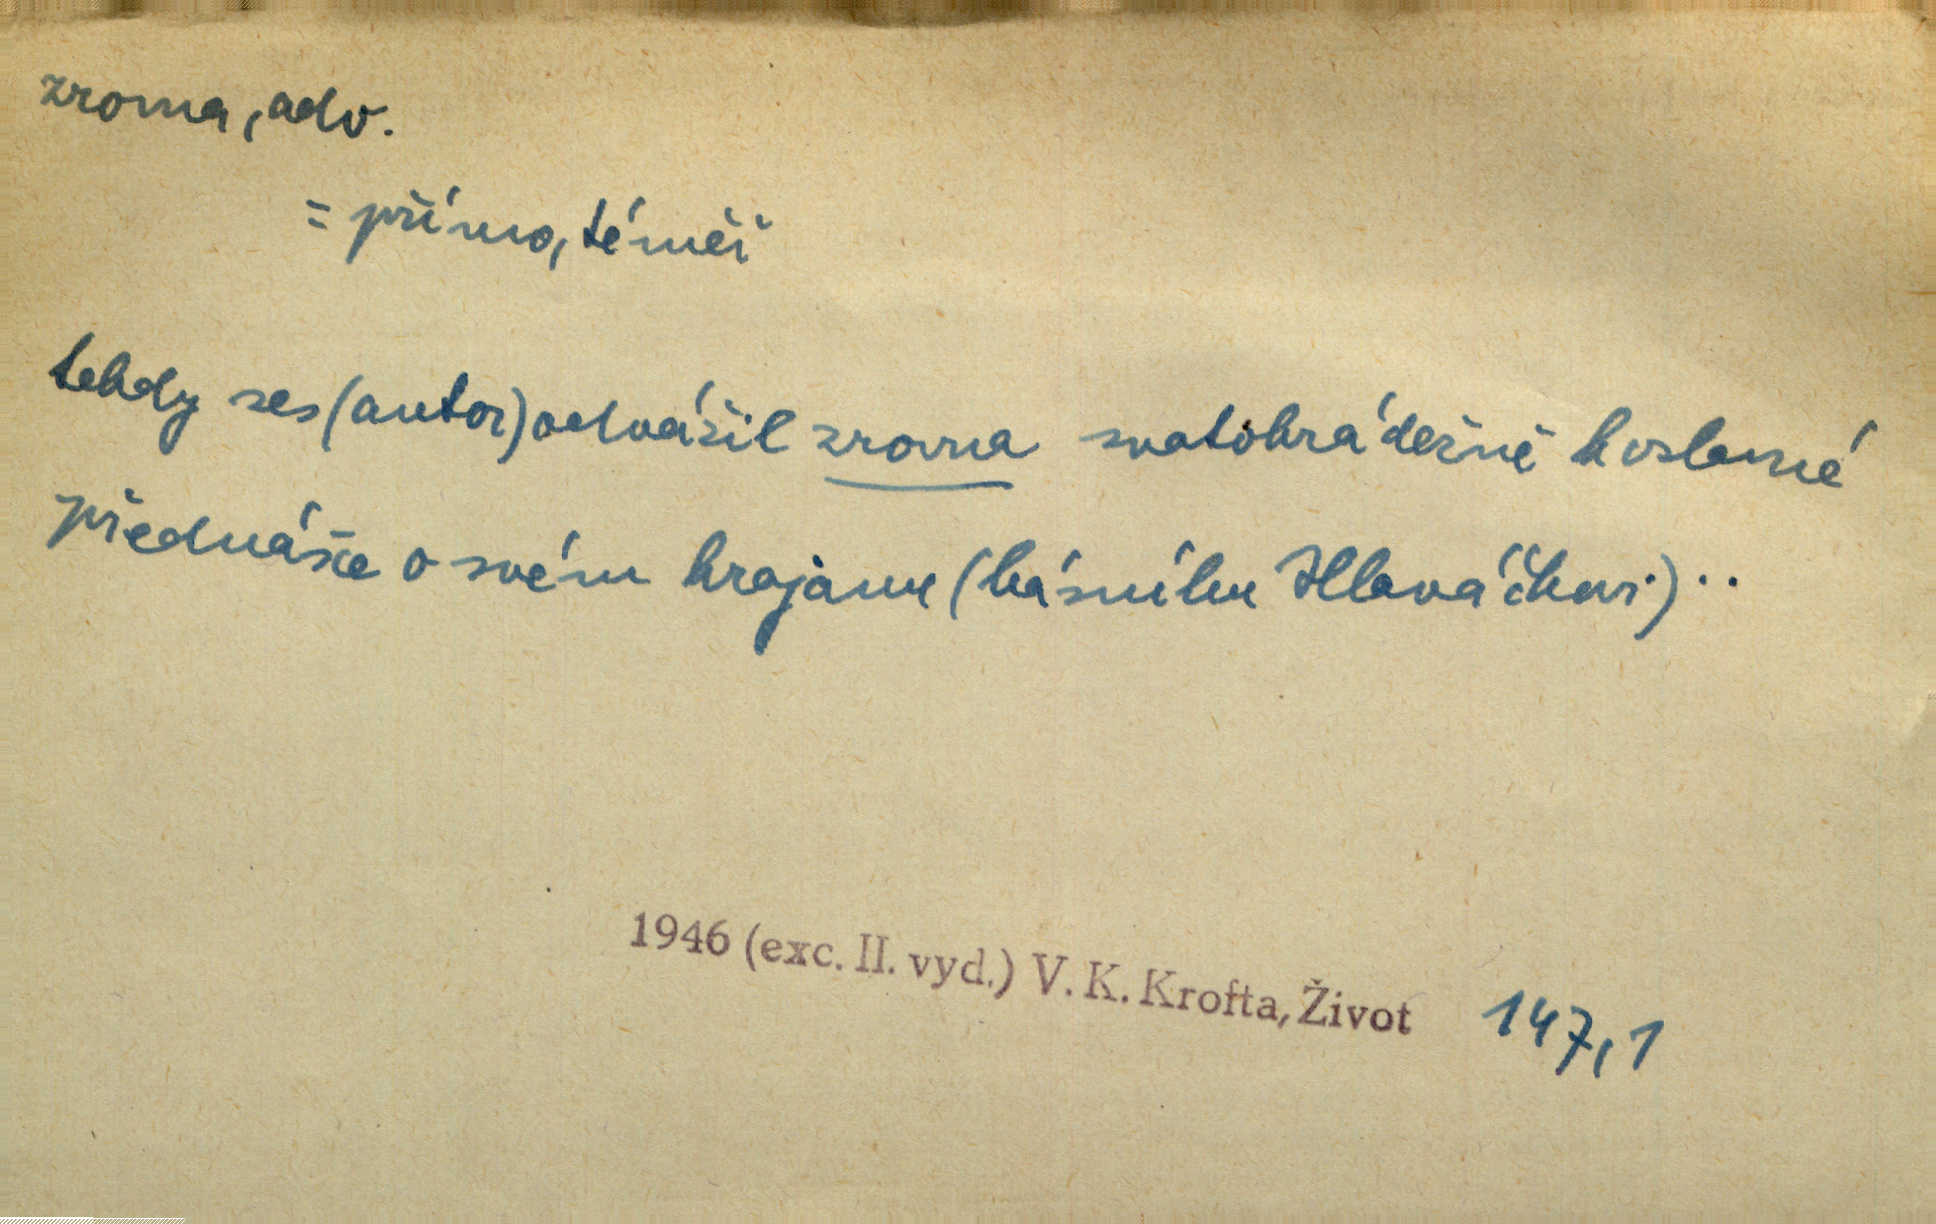 zrovna, adv.
= přímo, téměř
tehdy ses (autor) odvážil zrovna svatokrádežně k oslavné
přednášce o svém krajanu (básníku Hlaváčkovi) ..
1946 (exc. II. vyd.) V. K. Krofta, Život 147,1